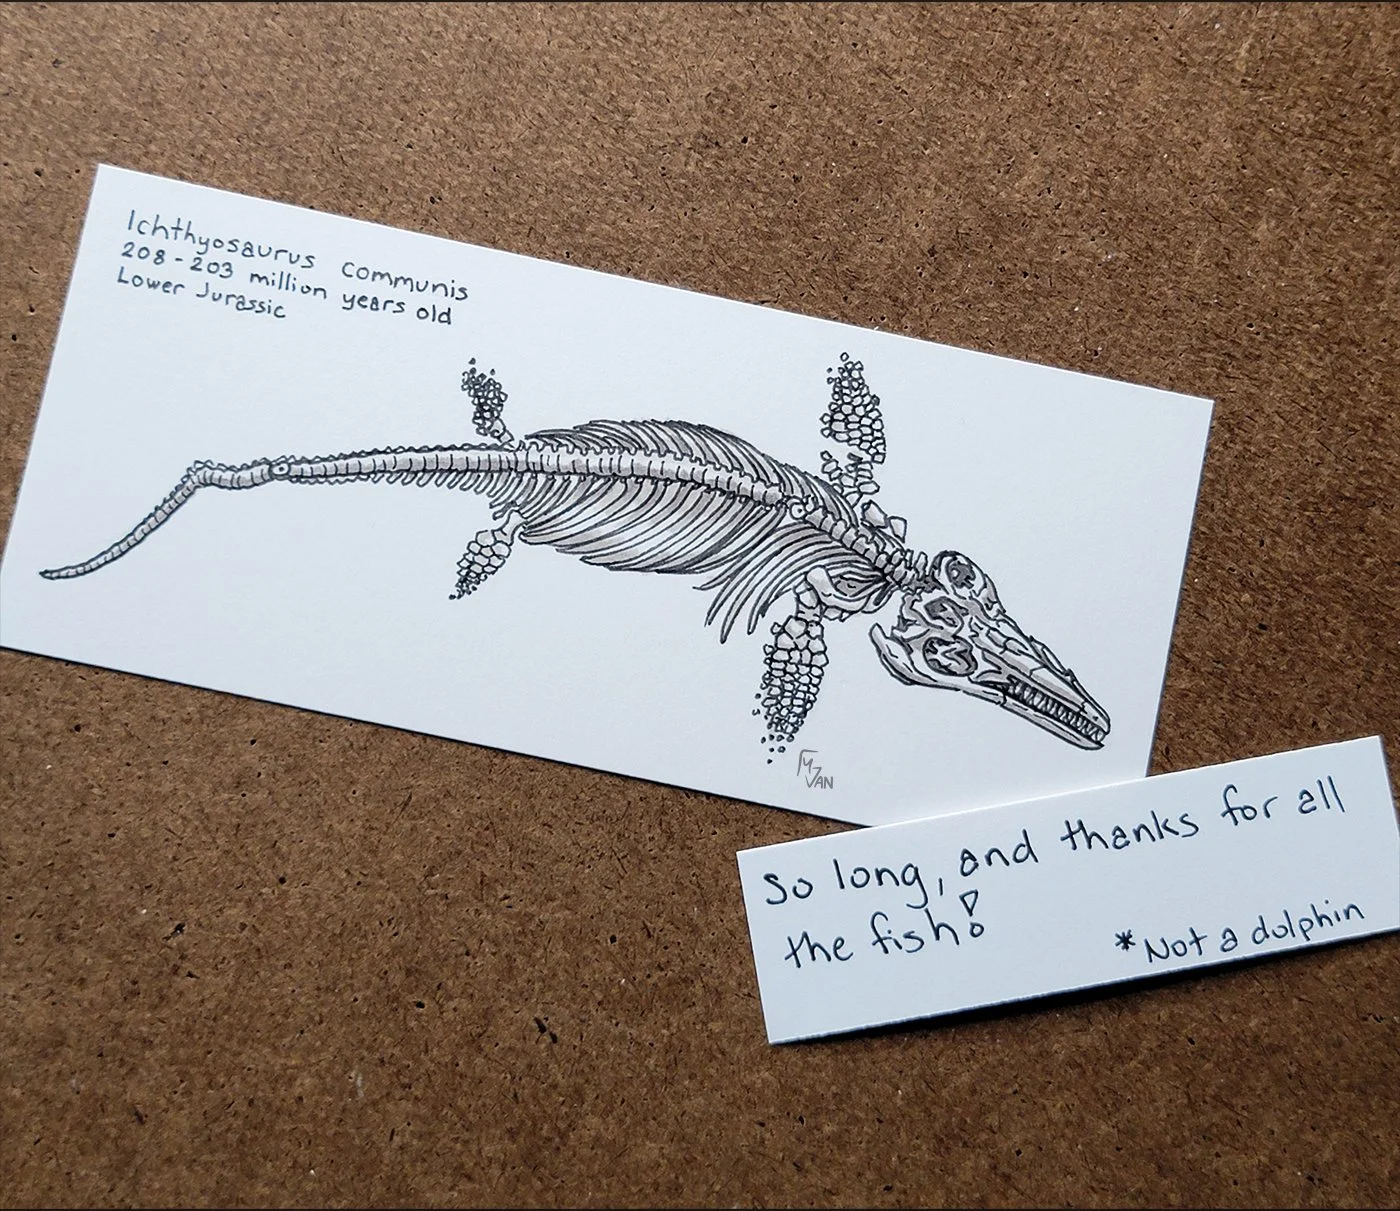 Ichthyosaurus communis
208-203 million years old
Lower Jurassic
MJVAN
So long, and thanks for all
the fish!
*Not a dolphin